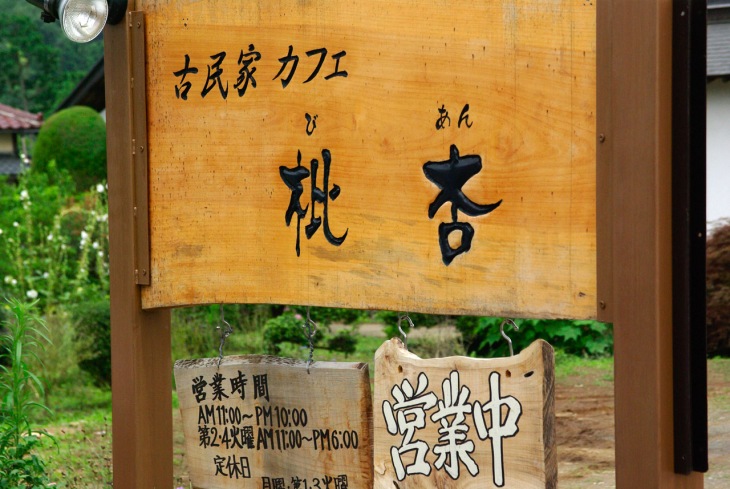 古民家カフェ
び あん
枇杏
営業時間
AM11:00～PM10:00
第2・4火曜AM11:00～PM6:00
定休日
月曜・第1・3火曜
営業中